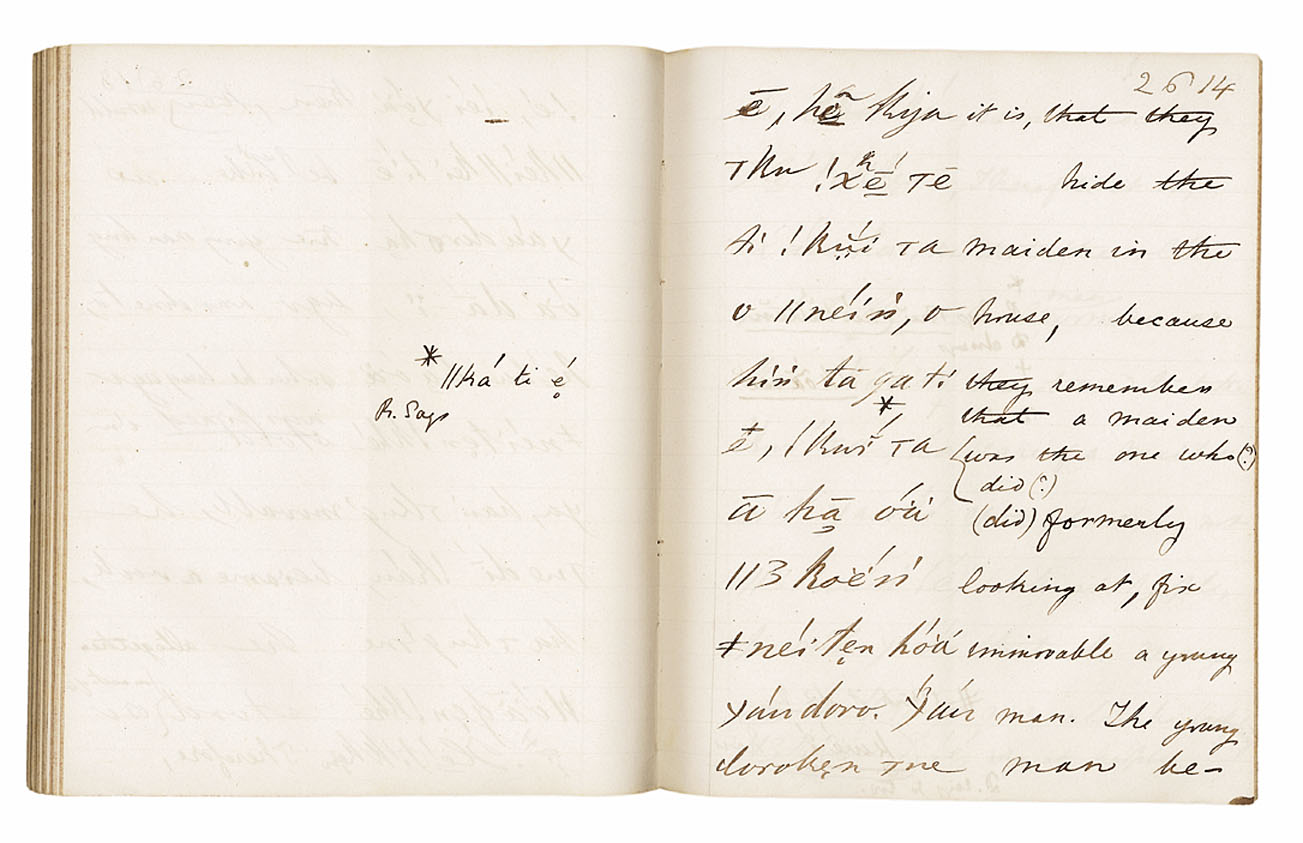 *
ǁká ti ẹ́
R. Says
2614
ē, hē̱ ⊤kija it is, ~~that they~~
⊤ku !x̱é ⊤ē hide ~~the~~
ti !kṳ́i ⊤a maiden in ~~the~~
o ǁnéiṅ, o house, because
hiṅ ta ⊤a ti ~~they~~ remember
~~that~~ a maiden
*
ē, !kuí ⊤a was ~~the~~ one who (?)
did (?)
ā hā̱ óä (did) formerly
ǁ3 koéṅ looking at, fix
ǂnéi tẹn hóä immovable a young
ɣáu doro. ɣáu man. The young
dorokẹn ⊤ne man be-